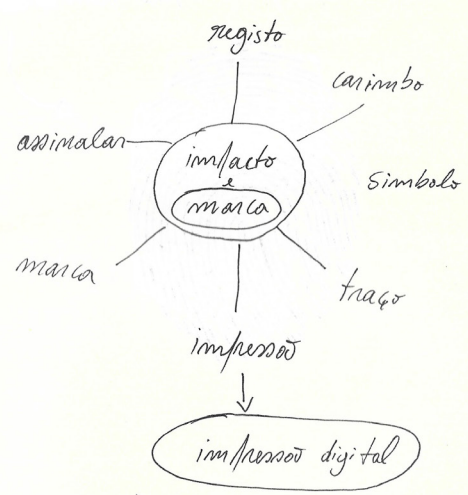 registo
carimbo
assinalar
impacto
e
marca
simbolo
marca
traço
impressão
impressão digital